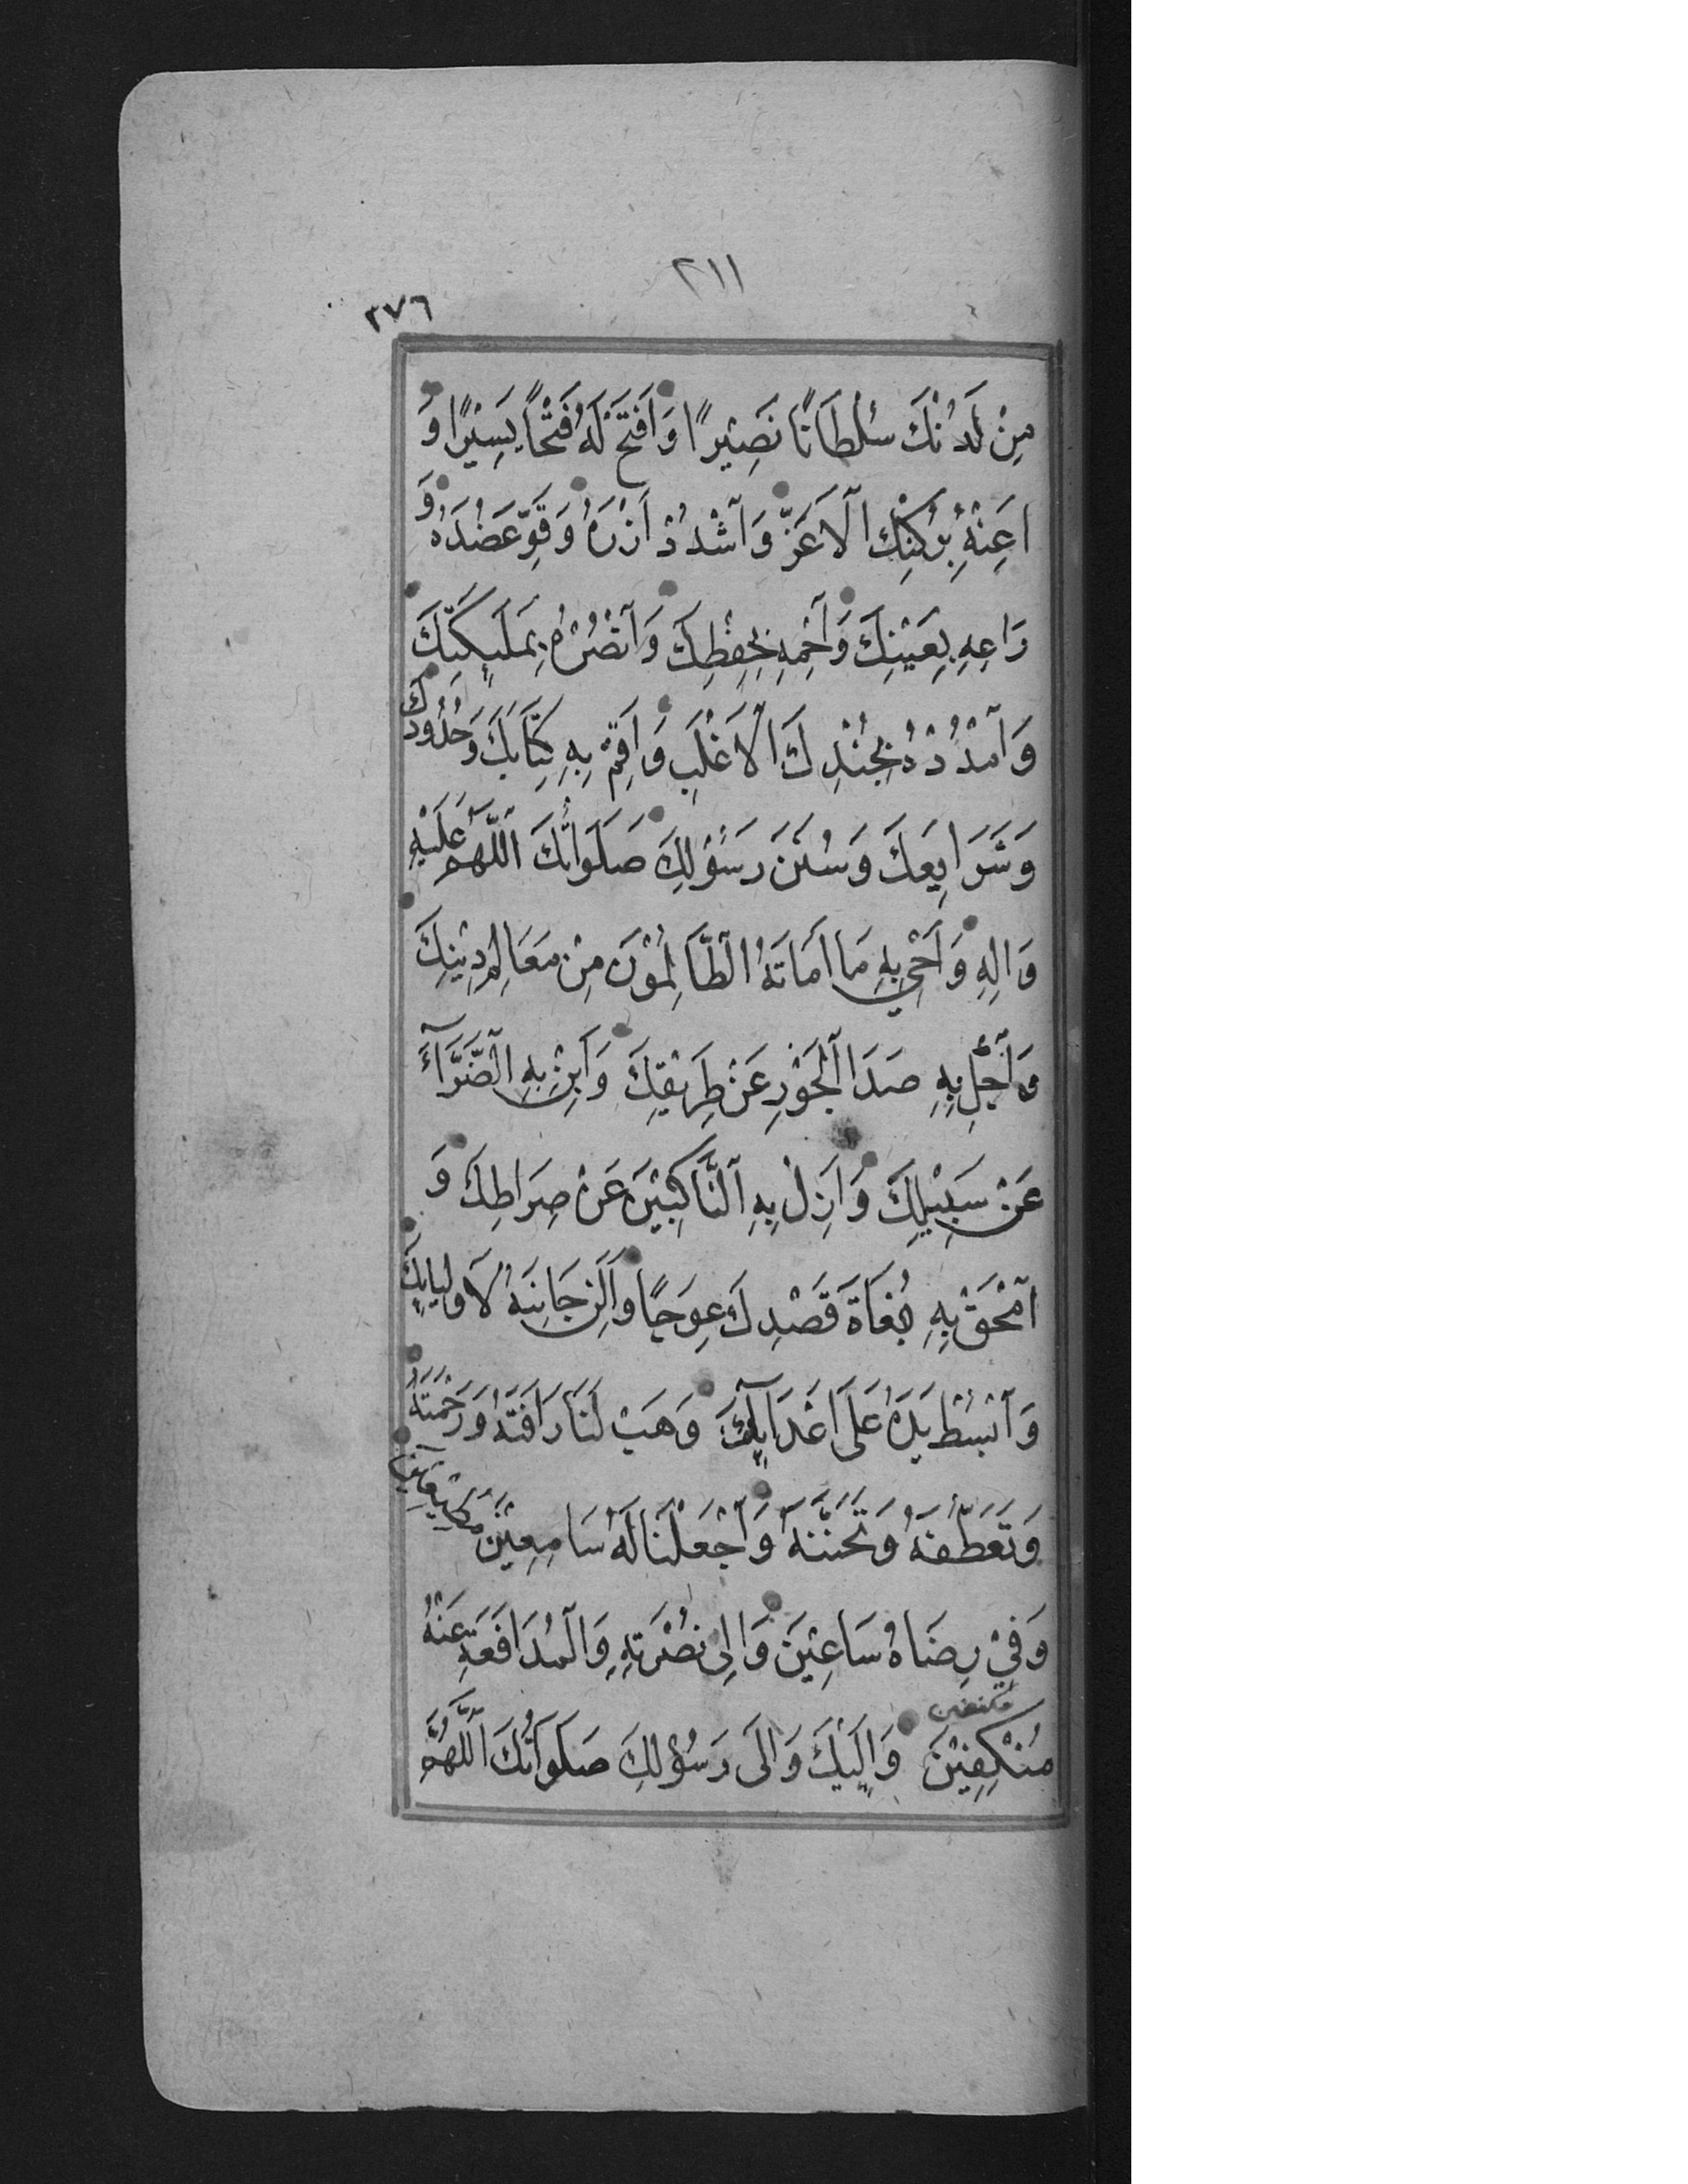 ٢١١
٢٧٦
مِنْ لَدُنْكَ سُلْطَانًا نَصِيْرًا وَافْتَحْ لَهُ فَتْحًا يَسِيْرًا وَ
اَعِنْهُ بِرُكْنِكَ الْاَعَزِّ وَاشْدُدْ اَزْرَهُ وَقَوِّ عَضُدَهُ وَ
رَاعِهِ بِعَيْنِكَ وَاحْمِهِ بِحِفْظِكَ وَانْصُرْهُ بِمَلٰٓئِكَتِكَ
وَامْدُدْهُ بِجُنْدِكَ الْاَغْلَبِ وَاَقِمْ بِهِ كِتَابَكَ وَحُدُودَكَ
وَشَرَايِعَكَ وَسُنَنَ رَسُوْلِكَ صَلَوَاتُكَ اللّٰهُمَّ عَلَيْهِ
وَاٰلِهِ وَاَحْيِ بِهِ مَا اَمَاتَهُ الظَّالِمُوْنَ مِنْ مَعَالِمِ دِيْنِكَ
وَاجْلُ بِهِ صَدَأَ الْجَوْرِ عَنْ طَرِيْقَتِكَ وَاَبِنْ بِهِ الضَّرَّآءَ
عَنْ سَبِيْلِكَ وَاَزِلْ بِهِ النَّاكِبِيْنَ عَنْ صِرَاطِكَ وَ
امْحَقْ بِهِ بُغَاةَ قَصْدِكَ عِوَجًا وَاَلِنْ جَانِبَهُ لِاَوْلِيَائِكَ
وَابْسُطْ يَدَهُ عَلَى اَعْدَآئِكَ وَهَبْ لَنَا رَافَتَهُ وَرَحْمَتَهُ
وَتَعَطُّفَهُ وَتَحَنُّنَهُ وَاجْعَلْنَا لَهُ سَامِعِيْنَ مُطِيْعِيْنَ
وَفِيْ رِضَاهُ سَاعِيْنَ وَاِلٰى نُصْرَتِهِ وَالْمُدَافَعَةِ عَنْهُ
مكنفين
مُنْكِفِيْنَ وَاِلَيْكَ وَاِلَى رَسُوْلِكَ صَلَوَاتُكَ اللّٰهُمَّ